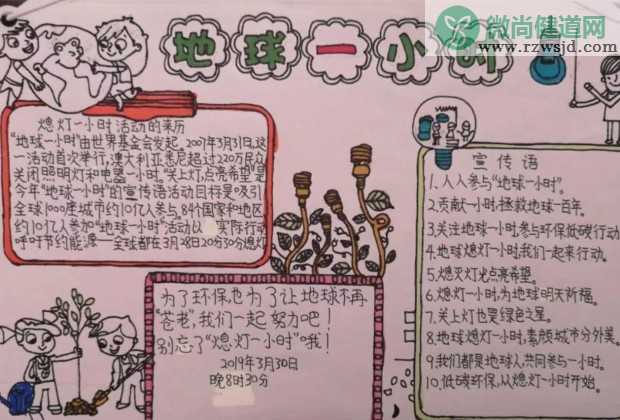 微尚健道网
www.rzwsjd.com
地球一小时
熄灯一小时活动的来历
"地球一小时"由世界基金会发起,2007年3月31日,这
一活动首次举行,澳大利亚悉尼超过220万民众
关闭照明灯和电器一小时."关上灯,点亮希望"是
今年"地球一小时"的宣传语活动目标是吸引
全球1000座城市约10亿人参与.84个国家和地区
约10亿人参加"地球一小时"活动以 实际行动
呼吁节约能源—全球都在3月28日20分30分熄灯
为了环保,也为了让地球不再
"苍老",我们一起努力吧!
别忘了"熄灯一小时"哦!
2019年3月30日
晚8时30分
宣传语
1.人人参与"地球一小时"。
2.贡献一小时,拯救地球一百年。
3.关注地球一小时参与环保低碳行动
4.地球熄灯一小时,我们一起来行动。
5.熄灭灯光点亮希望。
6.熄灯一小时,为地球明天祈福。
7.关上灯也是绿色之星。
8.地球熄灯一小时,素颜城市分外美。
9.我们都是地球人共同参与一小时。
10.低碳环保,从熄灯一小时开始。